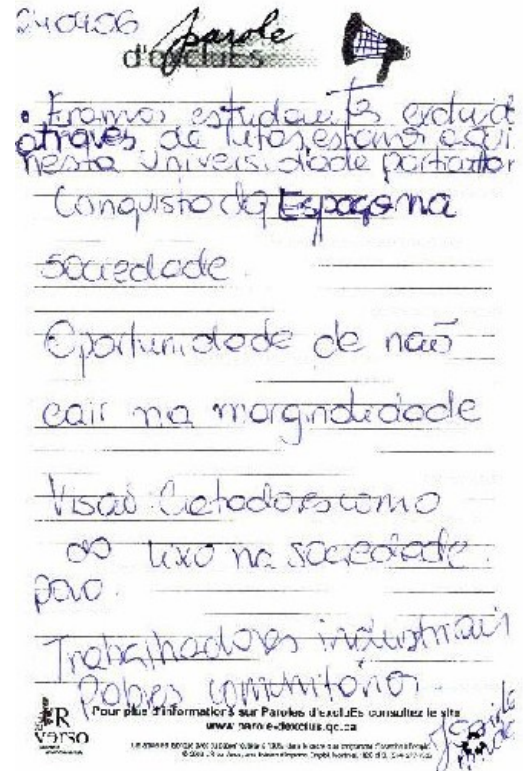 240406
parole
d'excluEs
• Eramos estudantes excluid
através de lutas, estamos aqui
nesta Universidade
Conquista do Espaço na
sociedade.
Oportunidade de não
cair na marginalidade
Visão Catadores como
do lixo na sociedade.
para.
Trabalhadores industriais
Pobres comunitário.
Pour plus d'informations sur Paroles d'excluEs consultez le site
www.parole-dexclus.qc.ca
R
VERSO